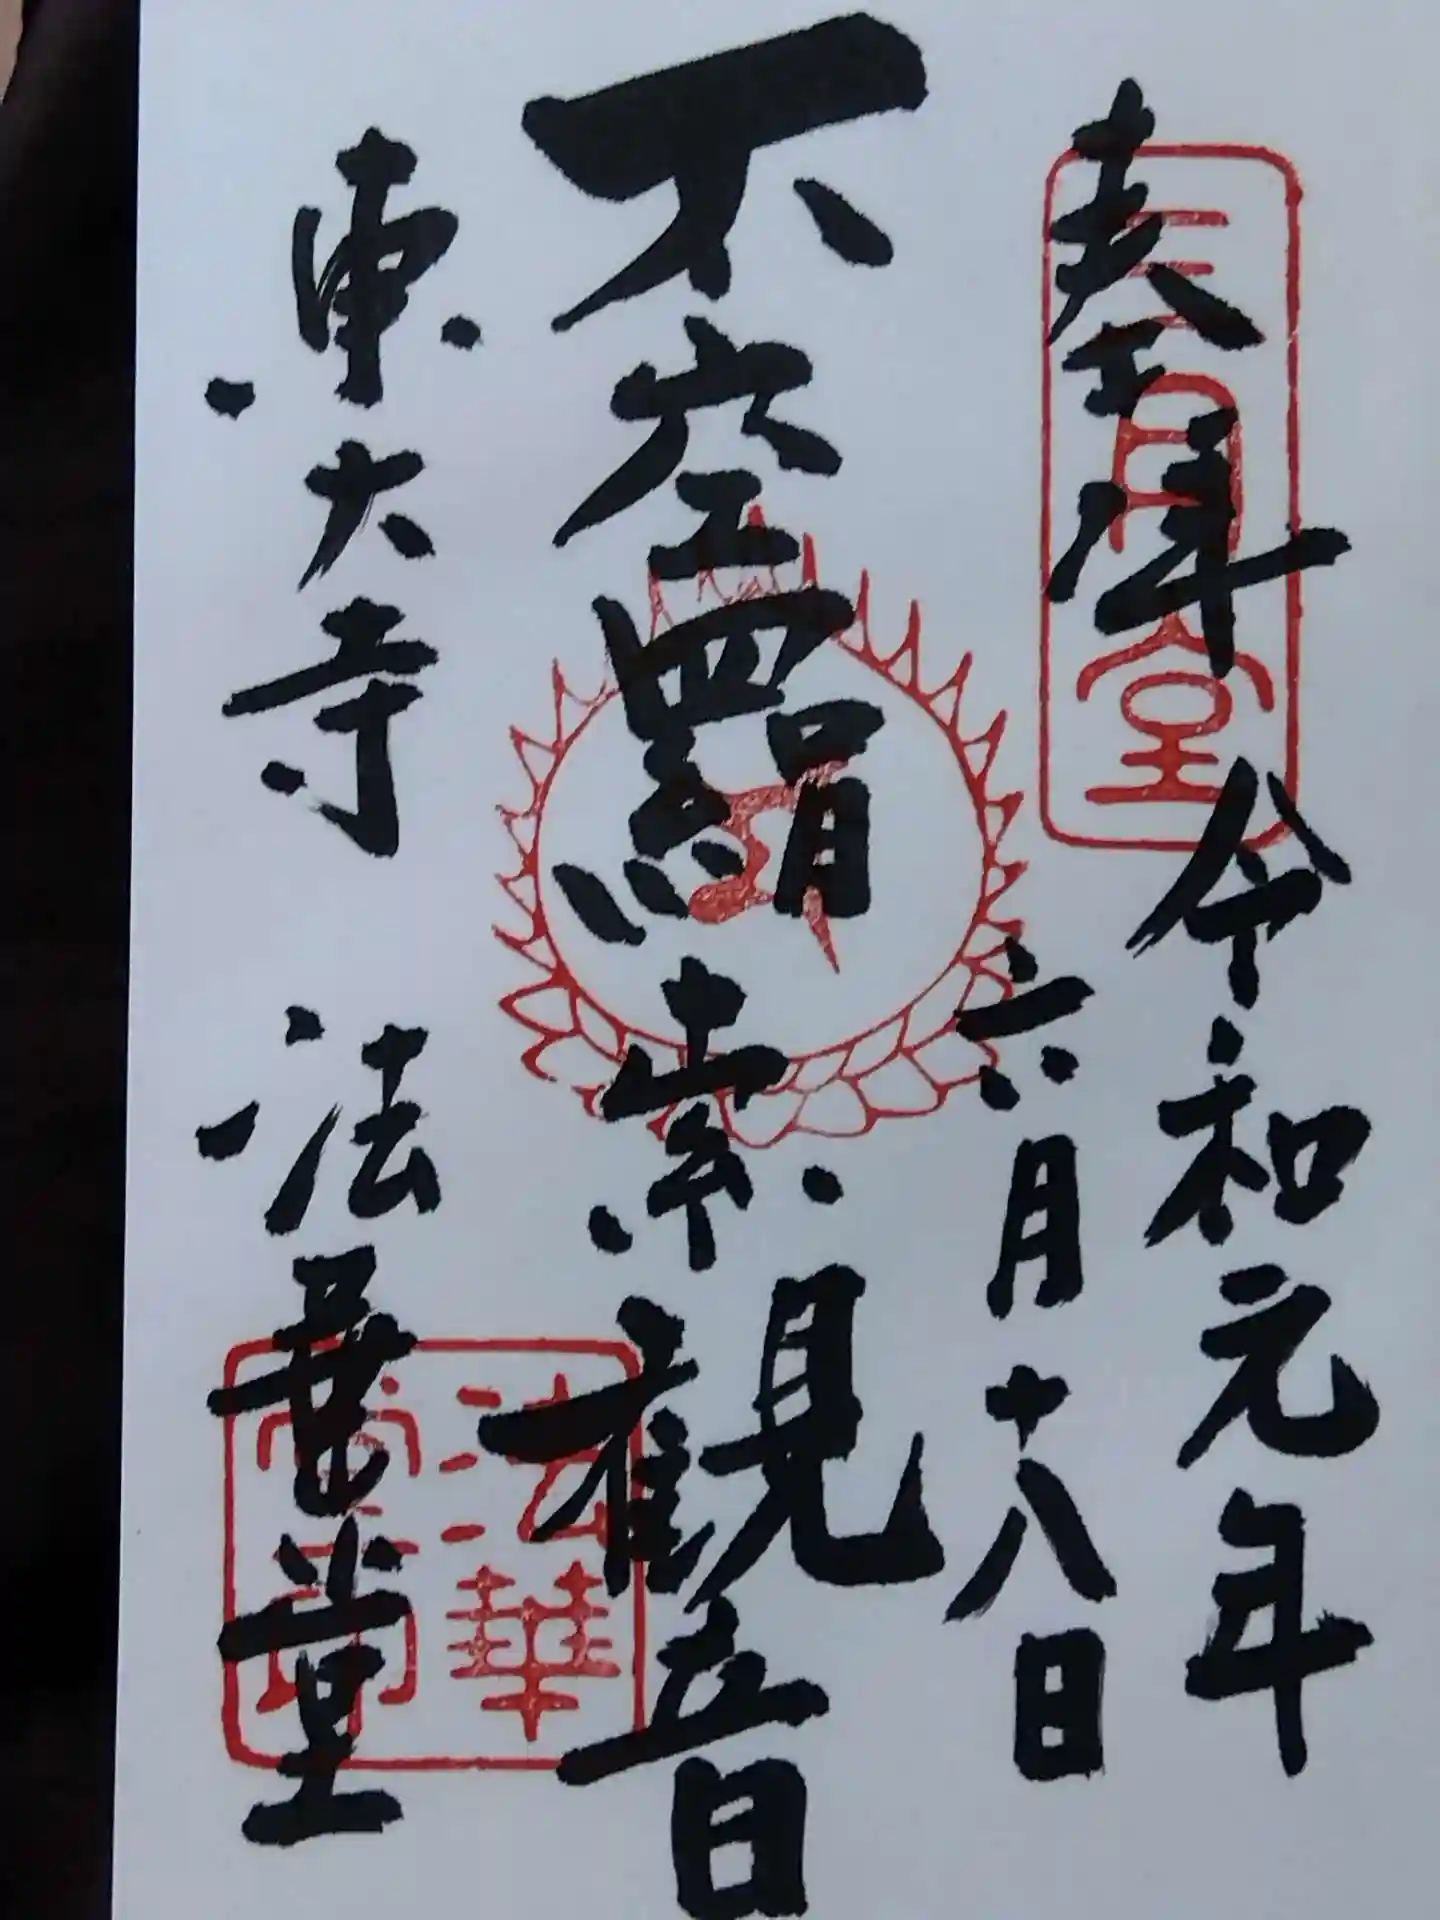 奉拝
令和元年
六月十八日
三月堂
不空羂索観音
東大寺 法華堂
法華
堂印